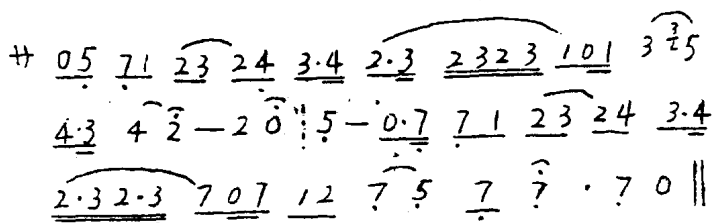 サ 05 71 23 24 3·4 2·3 2323 101 3 3/2 5
4·3 4 2 — 2 0 5 — 0·7 7 1 23 24 3·4
2·32·3 707 12 7 5 7 7 · 7 0 ‖